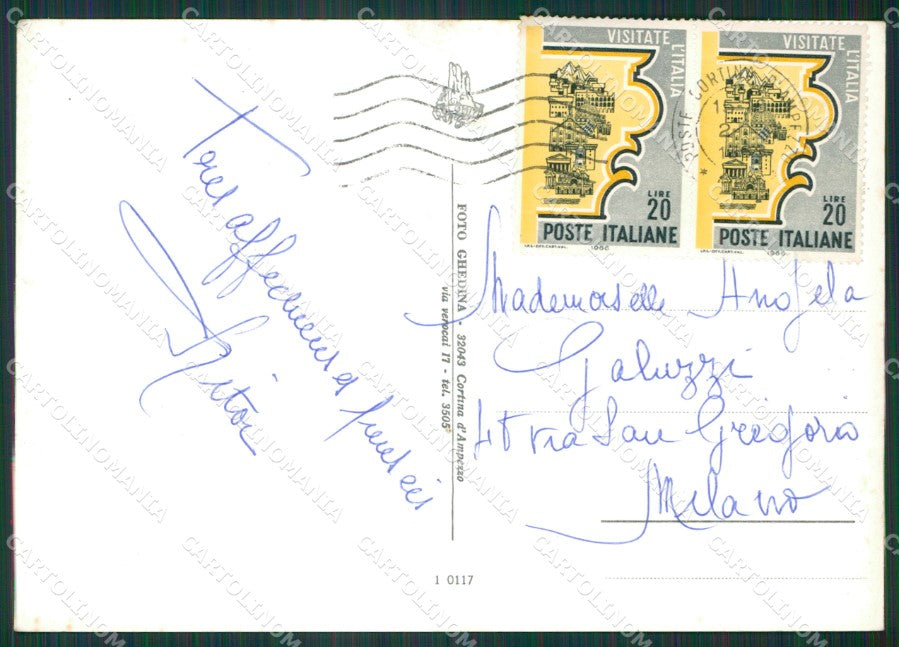 VISITATE L'ITALIA
LIRE
20
POSTE ITALIANE
I.P.S.-OFF.CART.VAL. 1966
VISITATE L'ITALIA
LIRE
20
POSTE ITALIANE
I.P.S.-OFF.CART.VAL. 1966
* POSTE CORTINA D'AMPEZZO
FOTO GHEDINA - 32043 Cortina d'Ampezzo
via verocai 17 - tel. 3505
affectueuses pensées
Mademoiselle Angela
Galuzzi
via San Gregorio
Milano
1 0117
CARTOLINOMANIA